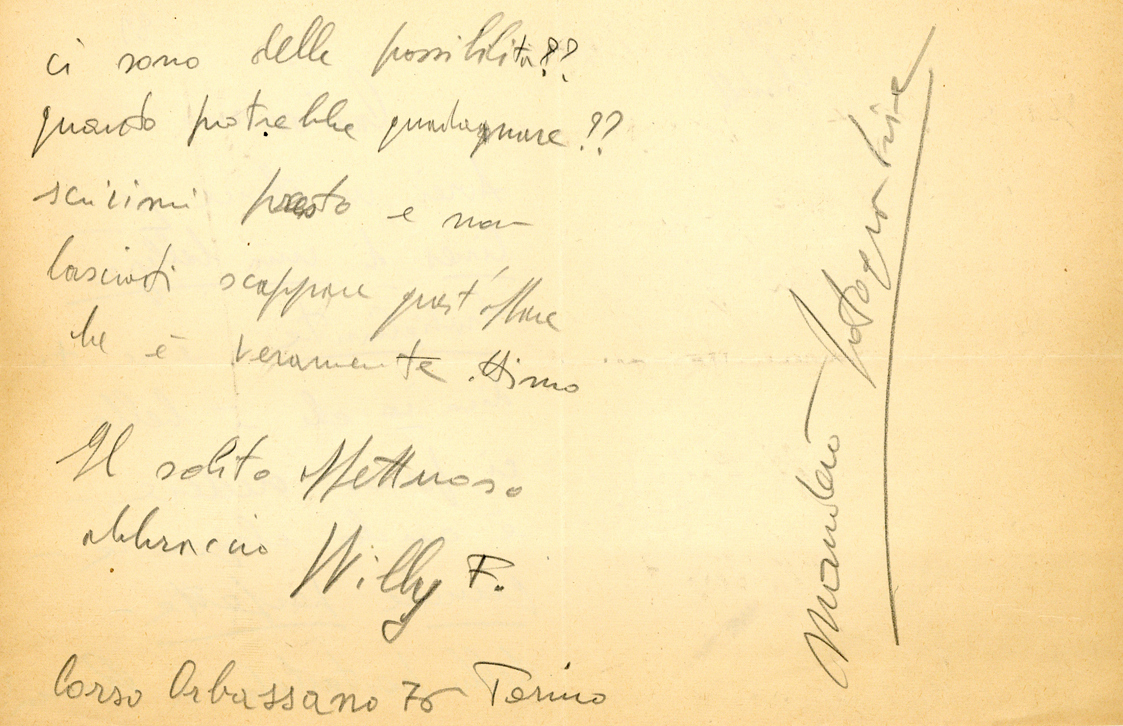 ci sono delle possibilità??
quando potrebbe guadagnare??
scrivimi presto e non
lasciarti scappare quest'affare
che è veramente ottimo
Il solito affettuoso
abbraccio Willy F.
Corso Orbassano 76 Torino
Manderò fotografie